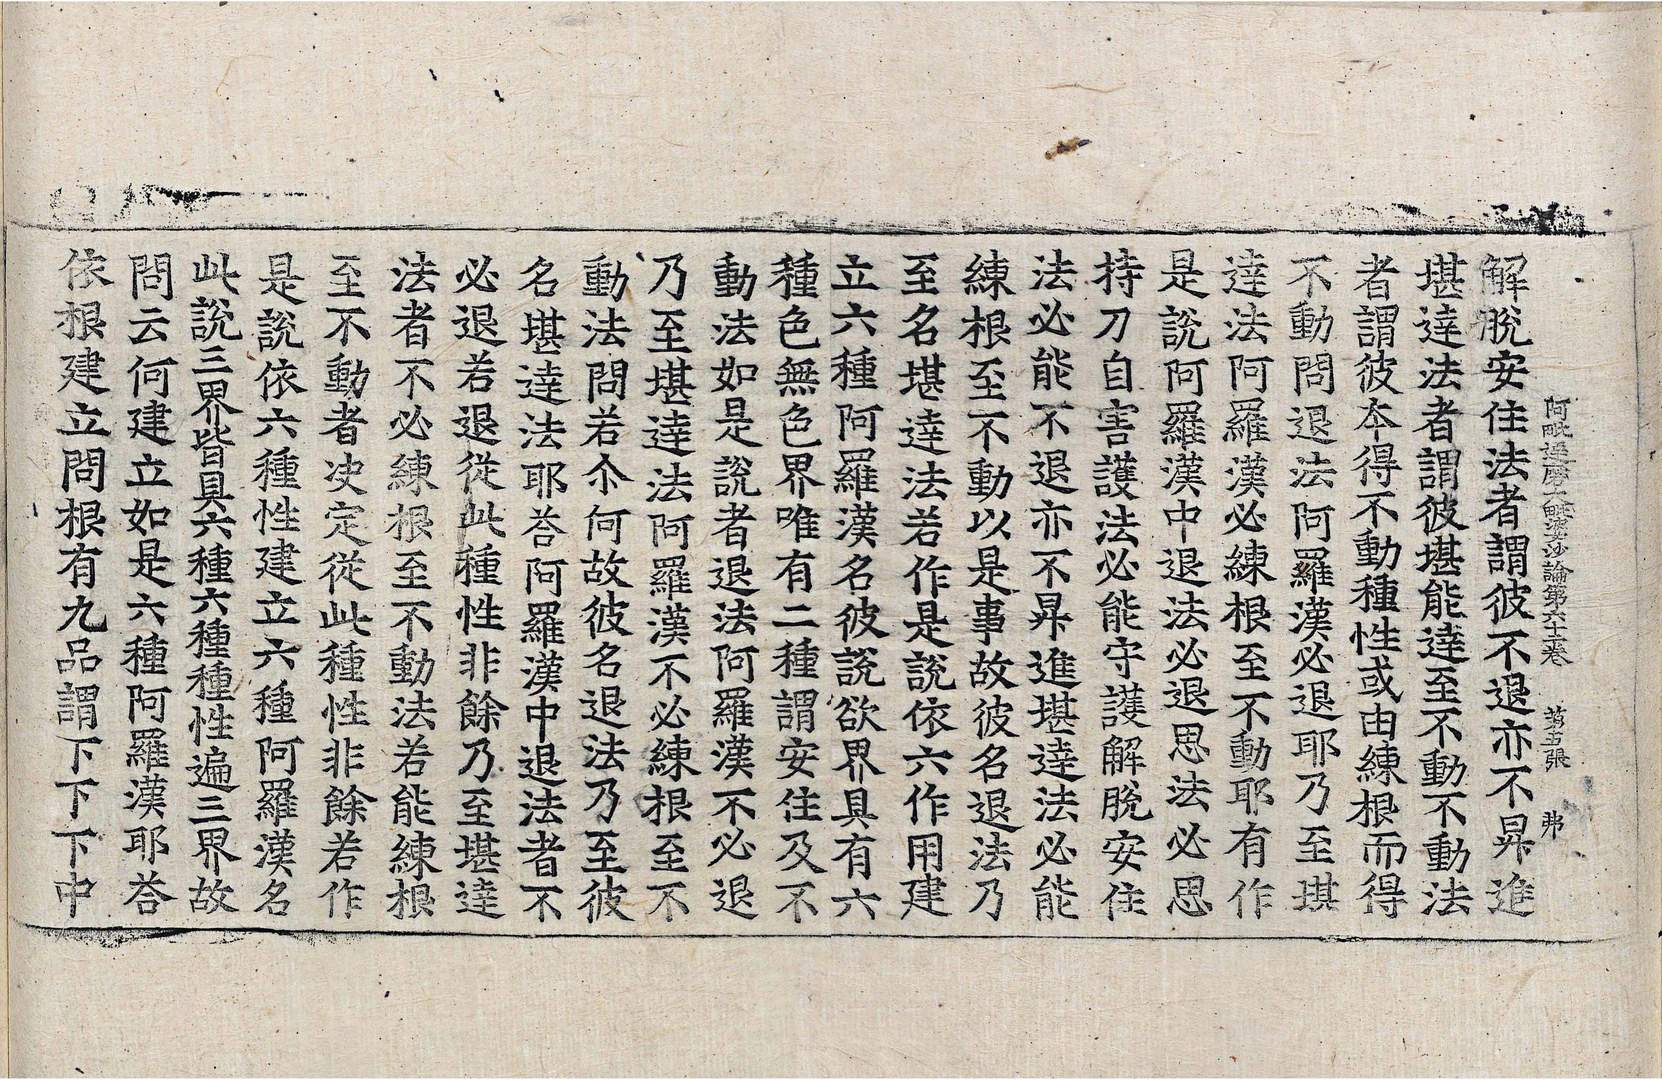 阿毗達磨大毗婆沙論第六十二卷 第五張 弗
解脫安住法者謂彼不退亦不昇進
堪達法者謂彼堪能達至不動不動法
者謂彼本得不動種性或由練根而得
不動問退法阿羅漢必退耶乃至堪
達法阿羅漢必練根至不動耶有作
是說阿羅漢中退法必退思法必思
持刀自害護法必能守護解脫安住
法必能不退亦不昇進堪達法必能
練根至不動以是事故彼名退法乃
至名堪達法若作是說依六作用建
立六種阿羅漢名彼說欲界具有六
種色無色界唯有二種謂安住及不
動法如是說者退法阿羅漢不必退
乃至堪達法阿羅漢不必練根至不
動法問若尒何故彼名退法乃至彼
名堪達法耶荅阿羅漢中退法者不
必退若退從此種性非餘乃至堪達
法者不必練根至不動法若能練根
至不動者决定從此種性非餘若作
是說依六種性建立六種阿羅漢名
此說三界皆具六種六種種性遍三界故
問云何建立如是六種阿羅漢耶荅
依根建立問根有九品謂下下下中